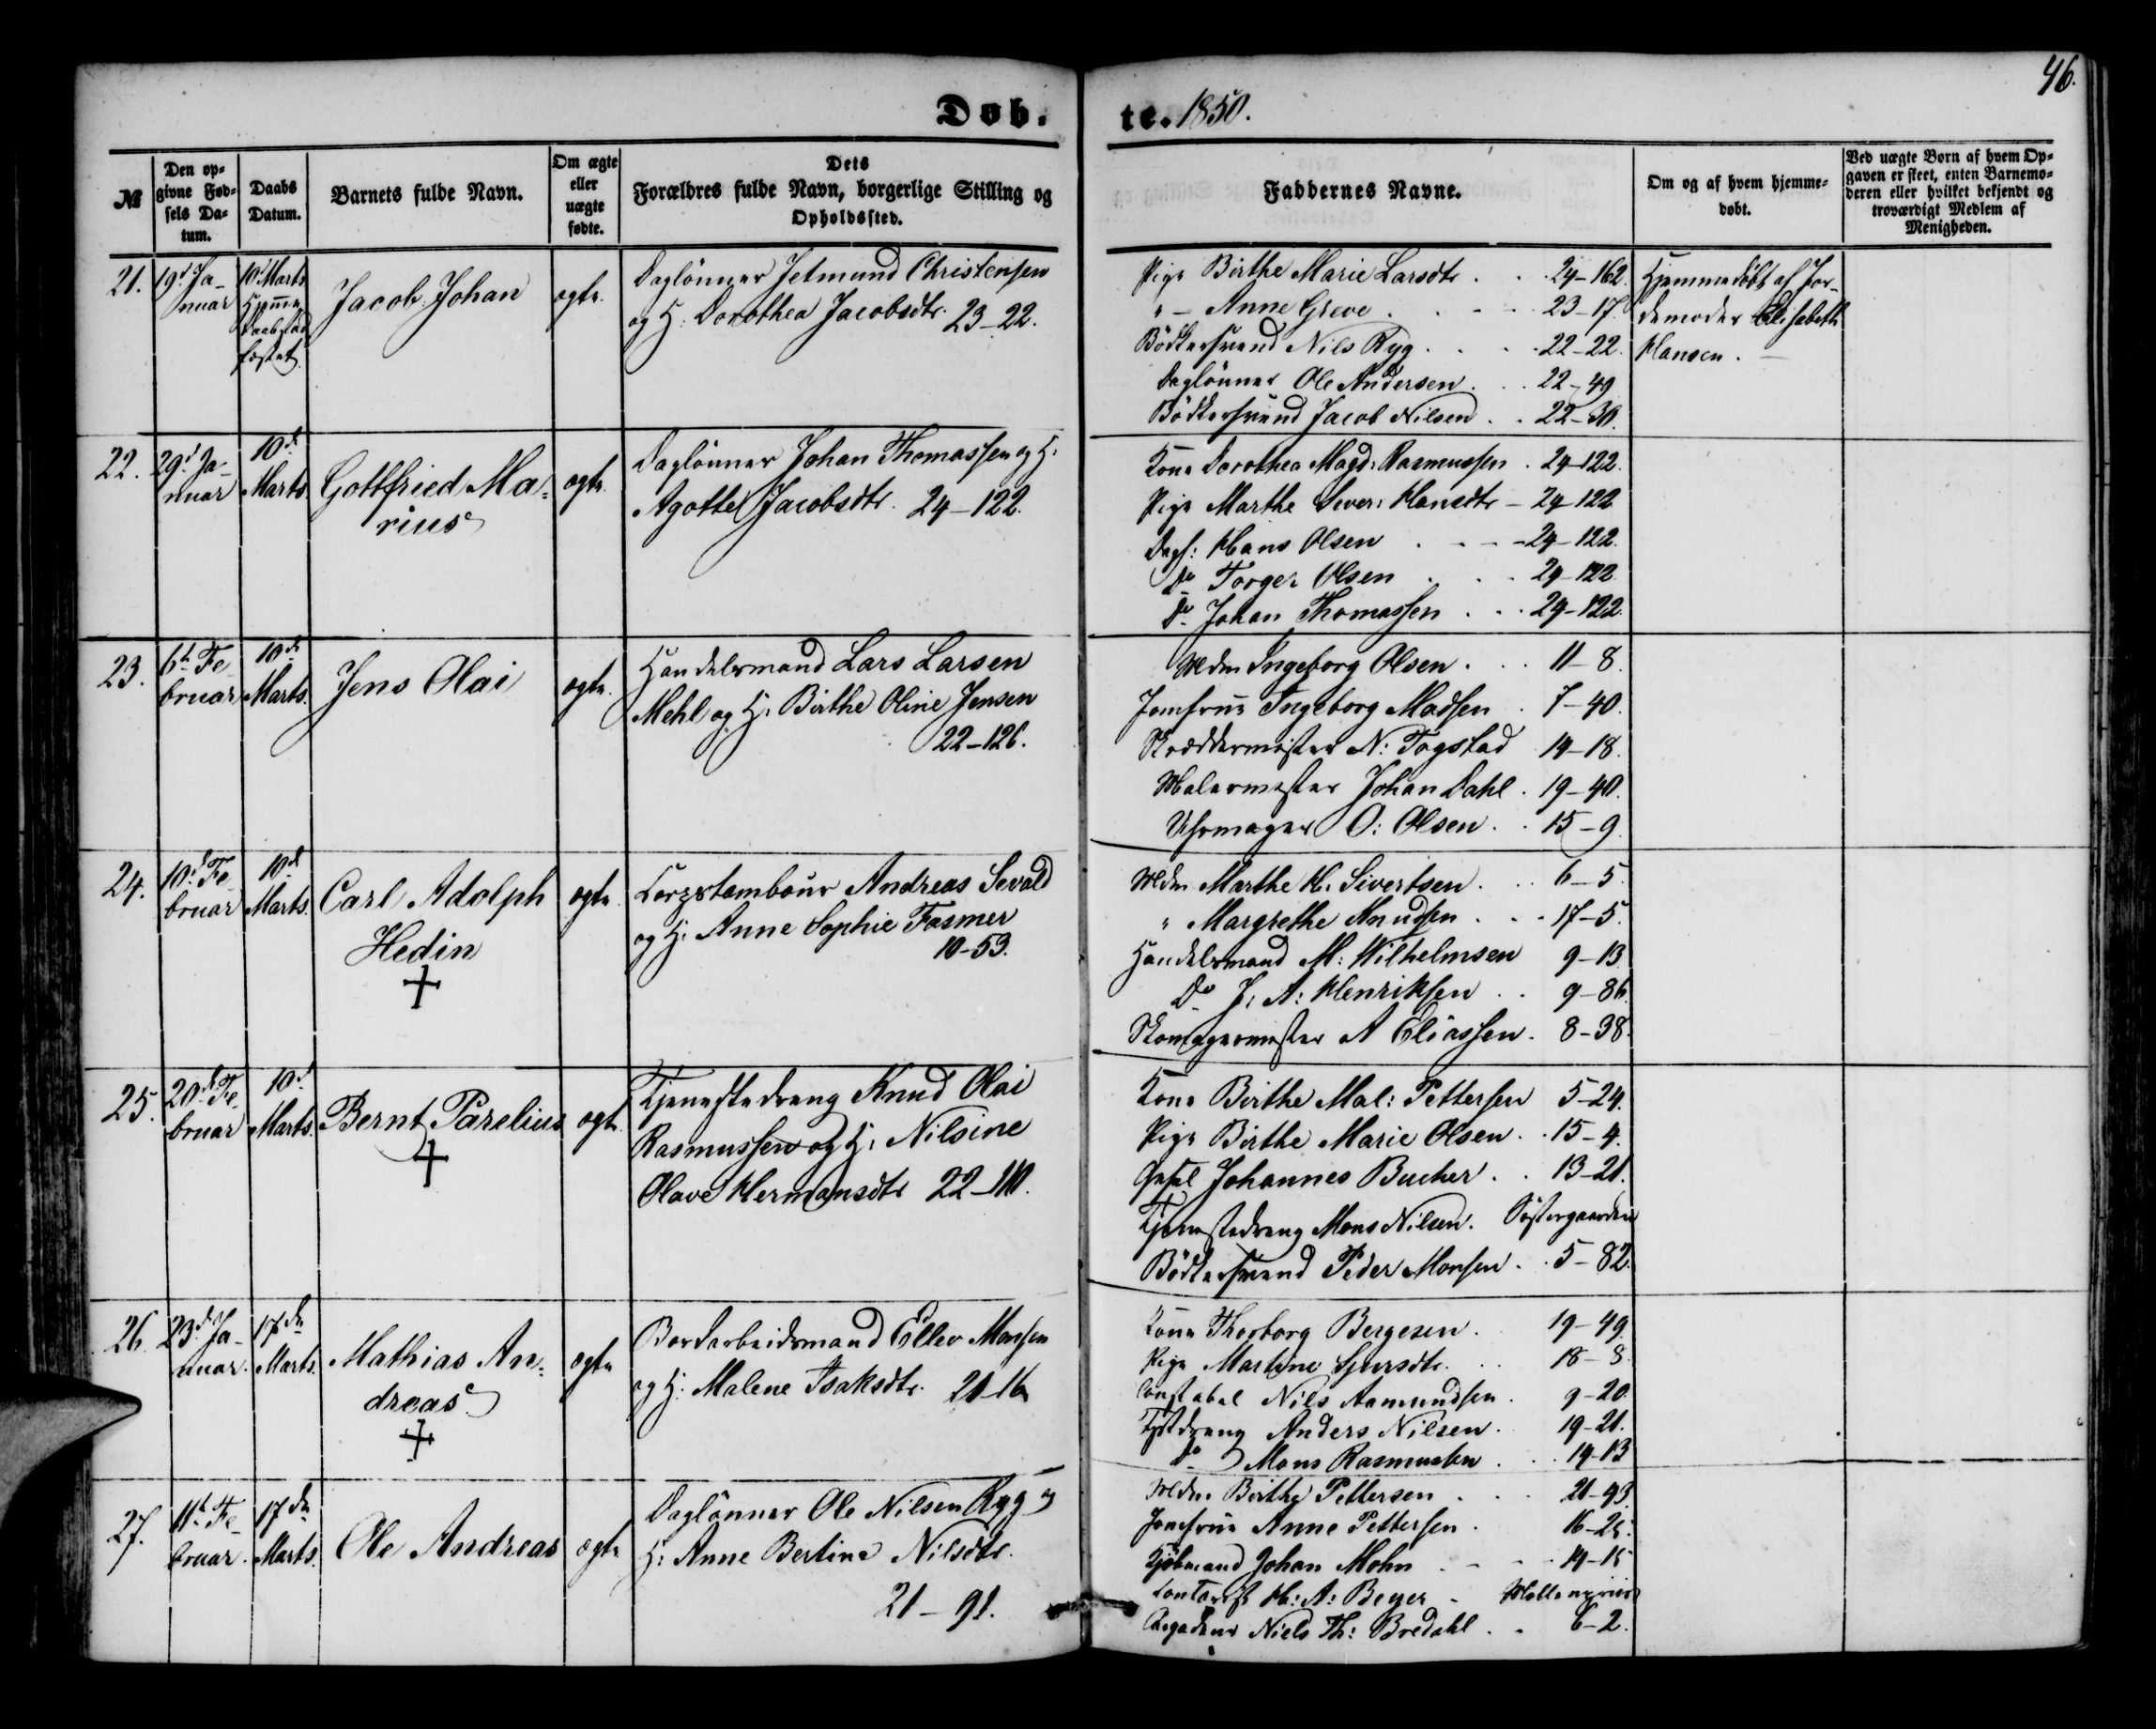 Døb. te. 1850.
46.
№
Den op-
givne Fød-
sels Da-
tum.
Daabs
Datum.
Barnets fulde Navn.
Om ægte
eller
uægte
fødte.
Dets
Forældres fulde Navn, borgerlige Stilling og
Opholdssted.
Faddernes Navne.
Om og af hvem hjemme-
døbt.
Ved uægte Børn af hvem Op-
gaven er skeet, enten Barnemo-
deren eller hvilket bekjendt og
troværdigt Medlem af
Menigheden.
21.
19d Ja-
nuar
10d Marts
Jacob Johan
ægte.
Daglønner Jetmund Christensen
og H: Dorothea Jacobsdtr. 23-22.
Pige Birthe Marie Larsdtr . . 24-162.
" - Anne Greve . . 23-17.
Bödkersvend Nils Ryg . . 22-22.
Daglönner Ole Andersen . . 22-49
Bödkersvend Jacob Nilsen . . 22-30.
Hjemmedöbt af Jor-
demoder Elisabeth
Hansen.
22.
29d Ja-
nuar
10d
Marts
Gottfried Ma-
rius
ægte.
Daglönner Johan Thomassen og H.
Agotte Jacobsdtr. 24-122.
Kone Dorothea Magd: Rasmussen . 24-122.
Pige Marthe Sever: Hansdtr - 24-122
Dagl: Hans Olsen . . 24-122.
Do Torger Olsen . . 24-122.
Do Johan Thomassen . . 24-122.
23.
6te Fe-
bruar
10d
Marts.
Jens Olai
ægte.
Handelsmand Lars Larsen
Mehl og H: Birthe Oline Jensen
22-126.
Mdm Ingeborg Olsen . . 11-8.
Jomfrue Ingeborg Madsen . 7-40.
Skræddermester N: Togstad 14-18.
Malermester Johan Dahl . 19-40.
Uhrmager O: Olsen . . 15-9.
24.
10d Fe-
bruar
10d
Marts.
Carl Adolph
Hedin
+
ægte.
Corpstambour Andreas Sevald
og H: Anne Sophie Fasmer
10-53.
Mdm Marthe H. Sivertsen . . 6-5.
" Margrethe Knudsen . . 17-5.
Handelsmand M: Wilhelmsen 9-13
Do J: A: Henriksen . . 9-86.
Skomagermester A Eliassen . 8-38.
25.
20d Fe-
bruar
10d
Marts.
Bernt Parelius
+
ægte
Tjenestedreng Knud Olai
Rasmussen og H: Nilsine
Olave Hermansdtr 22-110.
Kone Birthe Mal: Pettersen 5-24.
Pige Birthe Marie Olsen . . 15-4.
Johannes Bucher . . 13-21.
Tjenestedreng Mons Nilsen.
Bödkersvend Peder Monsen . . 5-82.
26.
23d Ja-
nuar.
17de
Marts.
Mathias An-
dreas
+
ægte
Bordarbeidsmand Ellev Monsen
og H: Malene Isaksdtr. 21-16
Kone Thorborg Bergesen . 19-49.
Pige Martine . . 18-8
Constabel Nils Aamundsen . 9-20.
Tjdreng Anders Nilsen . 19-21.
Do Mons Rasmussen . . 14-13
27.
11te Fe-
bruar.
17de
Marts.
Ole Andreas
ægte
Daglönner Ole Nilsen Ryg og
H: Anne Bertine Nilsdtr.
21-91.
Mdm Birthe Pettersen . . 21-93.
Jomfrue Anne Pettersen .
Kjöbmand Johan Mohn . .
Contorist H: A: Beyer -
Niels Th: Bredahl . . 6-2.